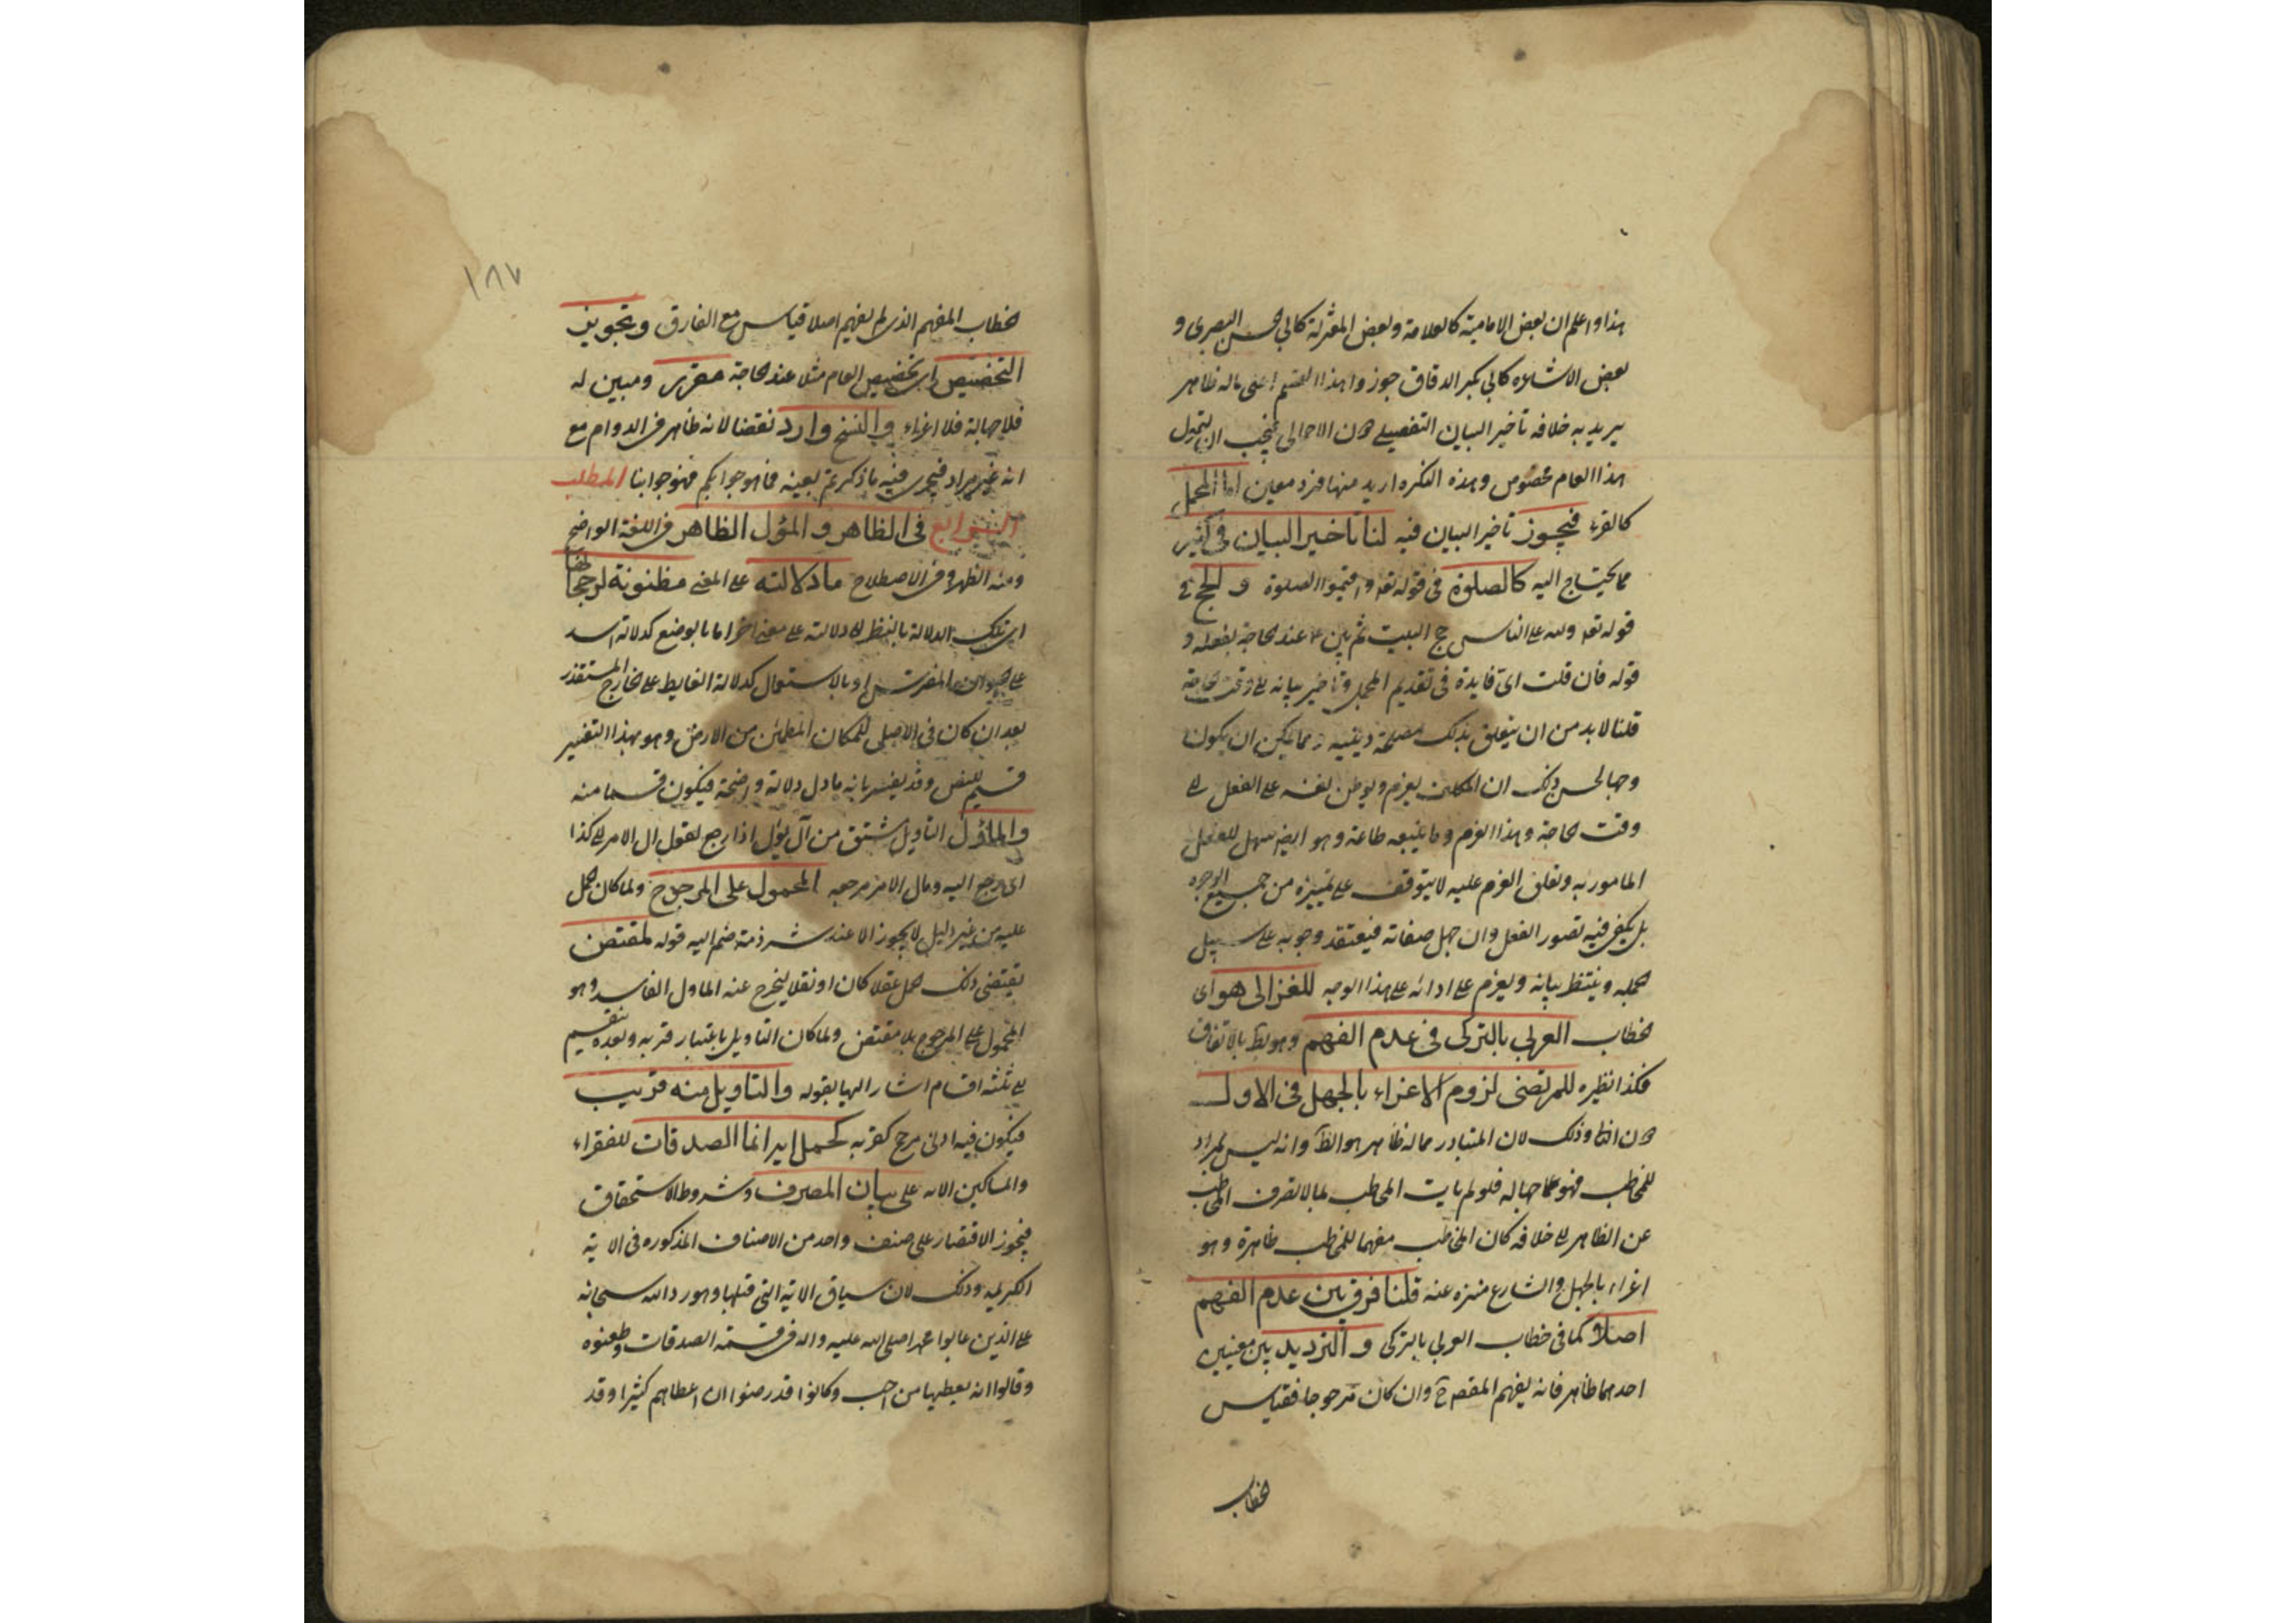 هذا واعلم ان بعض الامامية كالعلامة وبعض المعتزلة كابي الحسن البصري و
بعض الاشاعرة كابي بكر الدقاق جوزوا هذا القسم اعنى ماله ظاهر
يريد به خلافه تأخير البيان التفصيلي دون الاجمالي فيجب ان يقول
هذا العام مخصوص وهذه النكره اريد منها فرد معين اما المجمل
كالقرء فيجوز تأخير البيان فيه لنا تاخير البيان في كثير
مما يحتاج اليه كالصلوة في قوله تعه واقيموا الصلوة و الحج في
قوله تعه ولله على الناس حج البيت ثم بين عند الحاجة بفعله و
قوله فان قلت اى فايدة فى تقديم المجمل وتاخير بيانه الى وقت الحاجة
قلنا لابد من ان يتعلق بذلك مصلحة دينية ومما يمكن ان يكون
وجها لحسن ذلك ان المكلف يعزم ويوطن نفسه على الفعل الى
وقت الحاجة وهذا العزم وما يتبعه طاعة وهو ايضا يسهل للفعل
المامور به وتعلق العزم عليه لا يتوقف على تميزه من جميع الوجوه
بل يكفى فيه تصور الفعل وان جهل صفاته فيعتقد وجوبه على سبيل
الجمله وينتظر بيانه ويعزم على ادائه على هذا الوجه للغزالى هو اى
خطاب العربى بالتركى فى عدم الفهم وهو بط بالاتفاق
فكذا نظيره للمرتضى لزوم الاغراء بالجهل فى الاول
دون الثانى وذلك لان المتبادر مما له ظاهر هو الظ وانه ليس بمراد
للمخاطب فهو جهاله فلو لم يات المخاطب بما لا يصرف المخاطب
عن الظاهر الى خلافه كان المخاطب مفهما للمخاطب ظاهره وهو
اغراء بالجهل والشارع منزه عنه قلنا فرق بين عدم الفهم
اصلا كما فى خطاب العربى بالتركى و الترديد بين معنيين
احدهما ظاهر فانه يفهم المقصد ح وان كان مرجوحا فقياس
خطاب
١٨٧
الخطاب المفهم الذى لم يفهم اصلا قياس مع الفارق وتجويز
التخصيص اى تخصيص العام مثلا عند الحاجة مقرر ومبين له
فلا جهالة فلا اغراء و النسخ وارد نقضا لانه ظاهر فى الدوام مع
انه غير مراد فيجرى فيه ما ذكرتم بعينه فما هو جوابكم فهو جوابنا المطلب
الرابع فى الظاهر و المؤل الظاهر فى اللغة الواضح
ومنه الظهر وفى الاصطلاح ما دلالته على المعنى مظنونة لرجحانها
اى تلك الدلالة بالنظر الى دلالته على معنى اخر اما بالوضع كدلالة اسد
على الحيوان المفترس او بالاستعمال كدلالة الغايط على الخارج المستقذر
بعد ان كان فى الاصل للمكان المطمئن من الارض وهو بهذا التفسير
قسيم للنص وقد يفسر بانه ما دل دلالة واضحة فيكون قسما منه
والماؤل التاويل مشتق من آل يؤل اذا رجع تقول ال الامر الى كذا
اى رجع اليه ومال الامر مرجعه المحمول على المرجوح ولما كان الحمل
عليه من غير دليل لا يجوز الا عند شرذمة ضم اليه قوله لمقتض
يقتضى ذلك الحمل عقلا كان او نقلا ليخرج عنه الماول الفاسد وهو
المحمول على المرجوح بلا مقتض ولما كان التاويل باعتبار قربه وبعده ينقسم
الى ثلثة اقسام اشار اليها بقوله والتاويل منه قريب
فيكون فيه ادنى مرجح كقربه كحمل اية انما الصدقات للفقراء
والمساكين الايه على بيان المصرف وشروط الاستحقاق
فيجوز الاقتصار على صنف واحد من الاصناف المذكوره فى الاية
الكريمه وذلك لان سياق الاية التى قبلها وهو رد الله سبحانه
على الذين عابوا محمدا صلى الله عليه واله فى قسمة الصدقات وطعنوه
وقالوا انه يعطيها من احب وكانوا قد رضوا ان اعطاهم كثيرا وقد